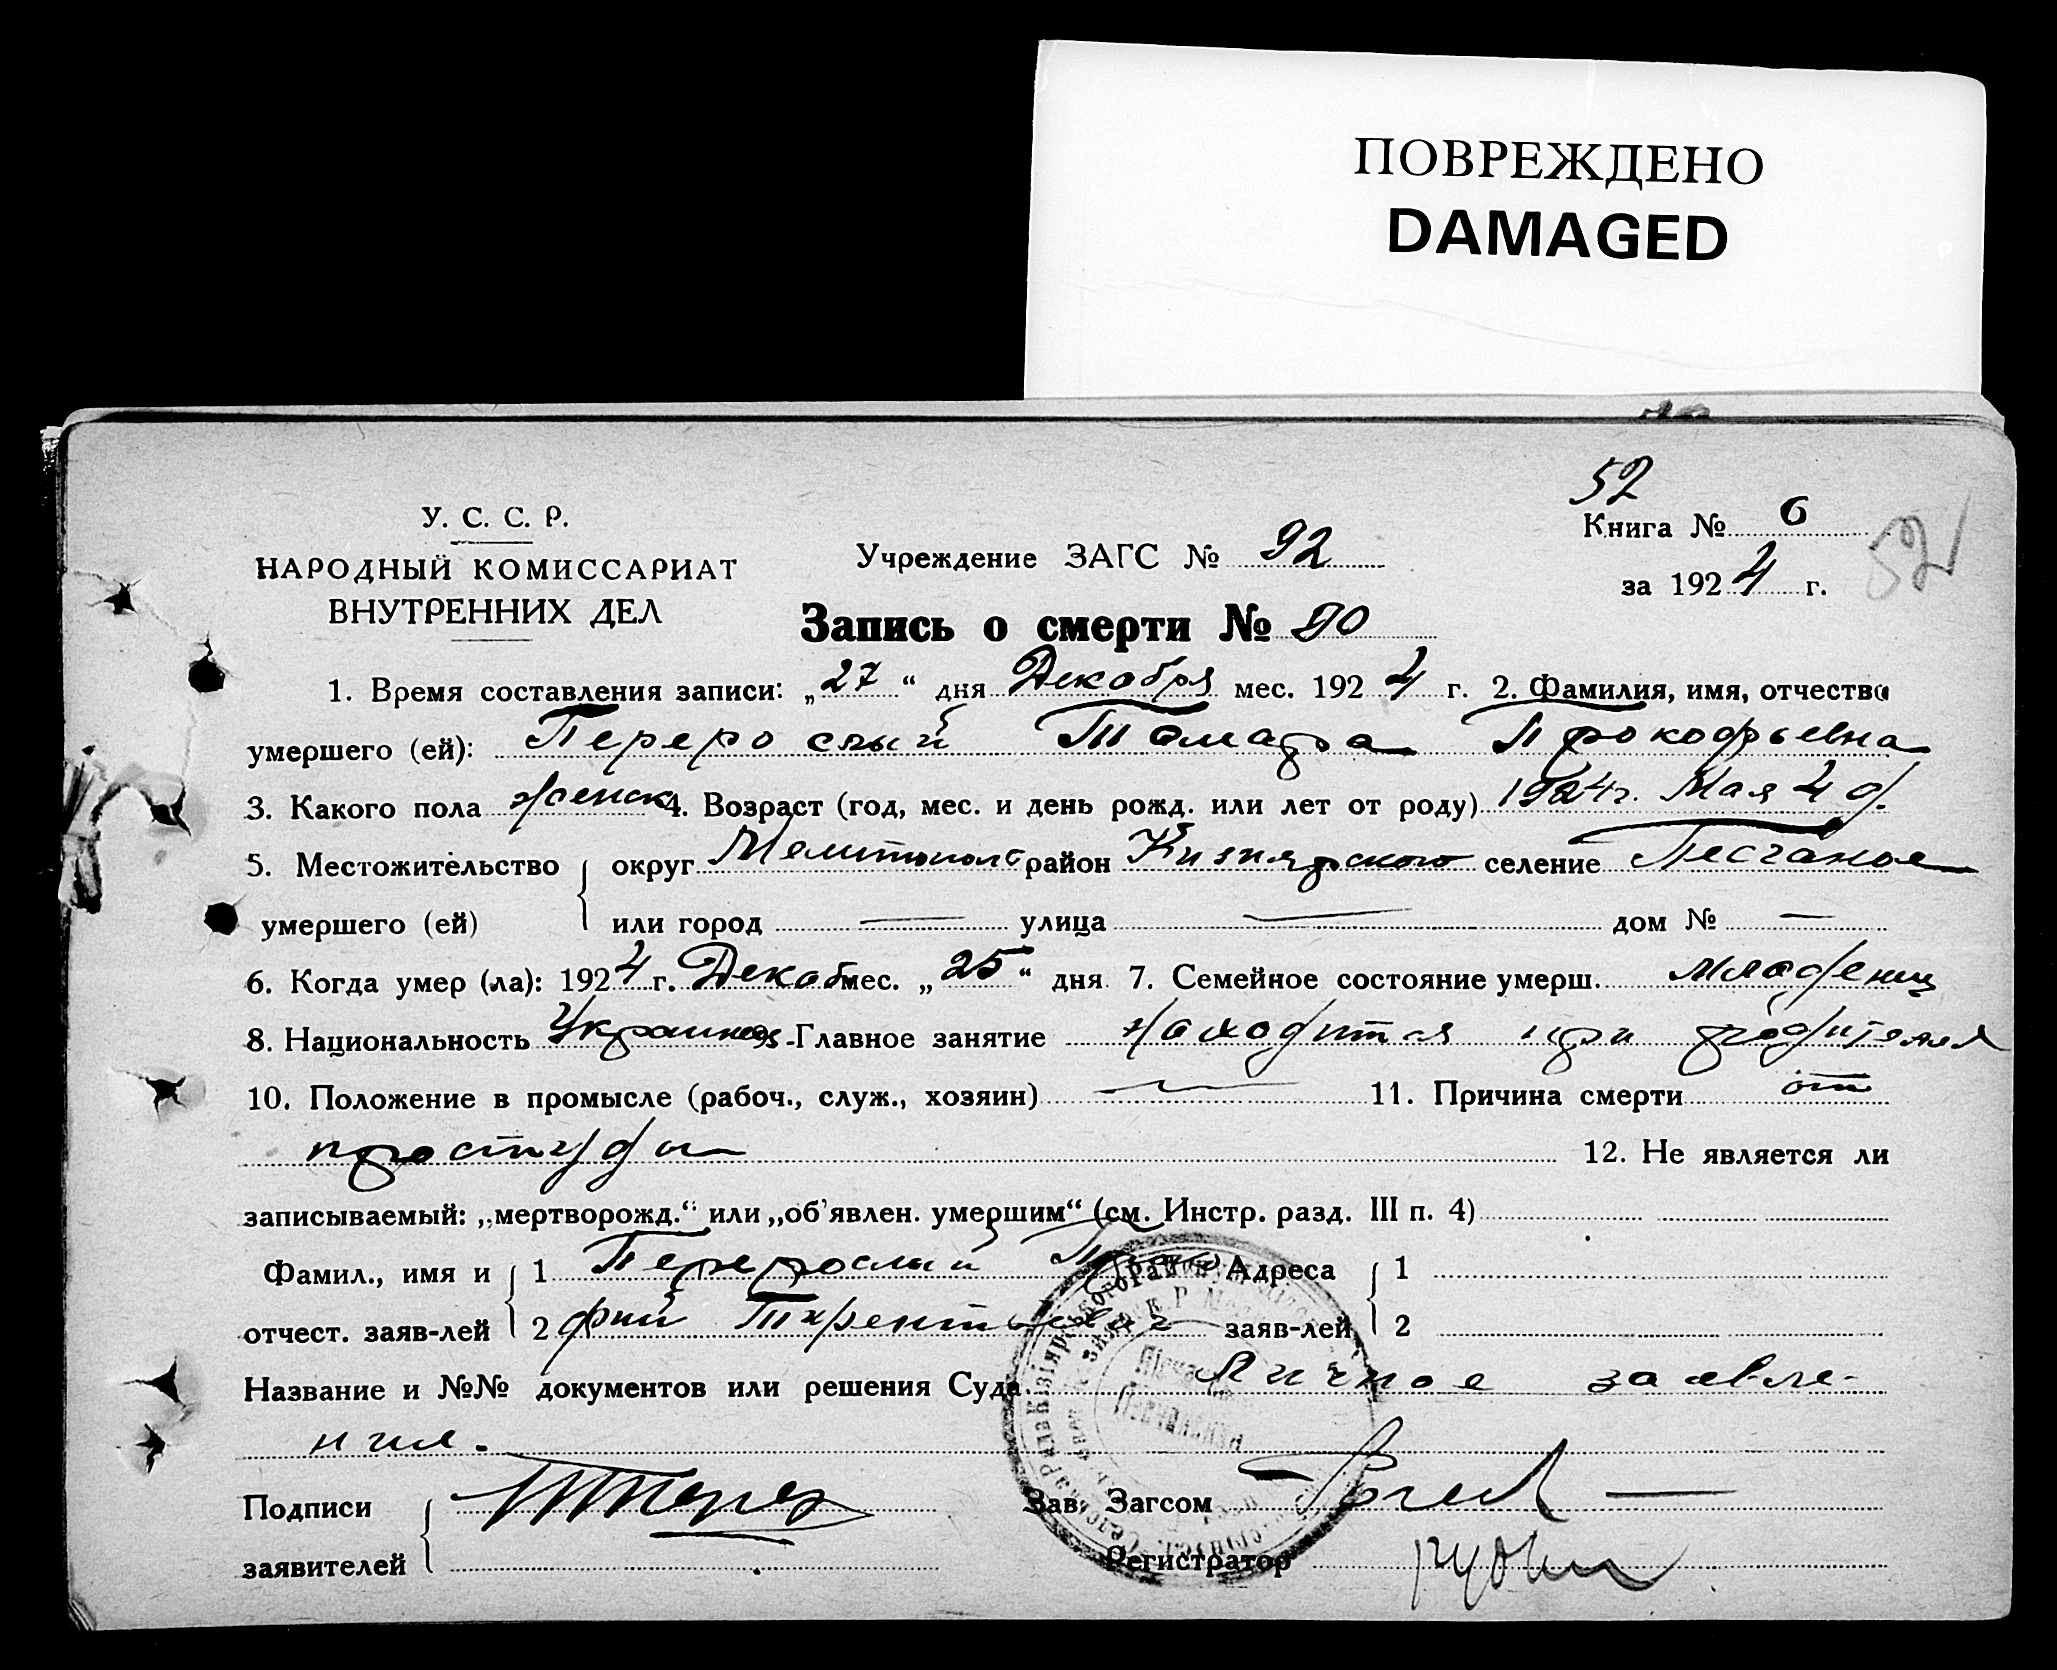 ПОВРЕЖДЕНО
DAMAGED
52
У. С. С. Р.
НАРОДНЫЙ КОМИССАРИАТ
ВНУТРЕННИХ ДЕЛ
Учреждение ЗАГС № 92
Книга № 6
за 1924 г.
52
Запись о смерти № 90
1. Время составления записи: „27“ дня Декабря мес. 1924 г. 2. Фамилия, имя, отчество
умершего (ей): Перерослый Тамара Прокофьевна
3. Какого пола женск 4. Возраст (год, мес. и день рожд. или лет от роду) 1924 г. Мая 4 д.
5. Местожительство округ Мелитопол район Кизиярского селение Песчаное
умершего (ей) или город — улица — дом № —
6. Когда умер (ла): 1924 г. Декаб мес. „25“ дня 7. Семейное состояние умерш. младенец
8. Национальность Главное занятие находится при
10. Положение в промысле (рабоч., служ., хозяин) — 11. Причина смерти от
простуды 12. Не является ли
записываемый: „мертворожд.“ или „об'явлен. умершим“ (см. Инстр. разд. III п. 4)
Фамил., имя и 1 Перерослый Проко Адреса 1
отчест. заяв-лей 2 фий заяв-лей 2
Название и №№ документов или решения Суда Личное заявле-
ния.
Подписи Зав. Загсом
заявителей Регистратор